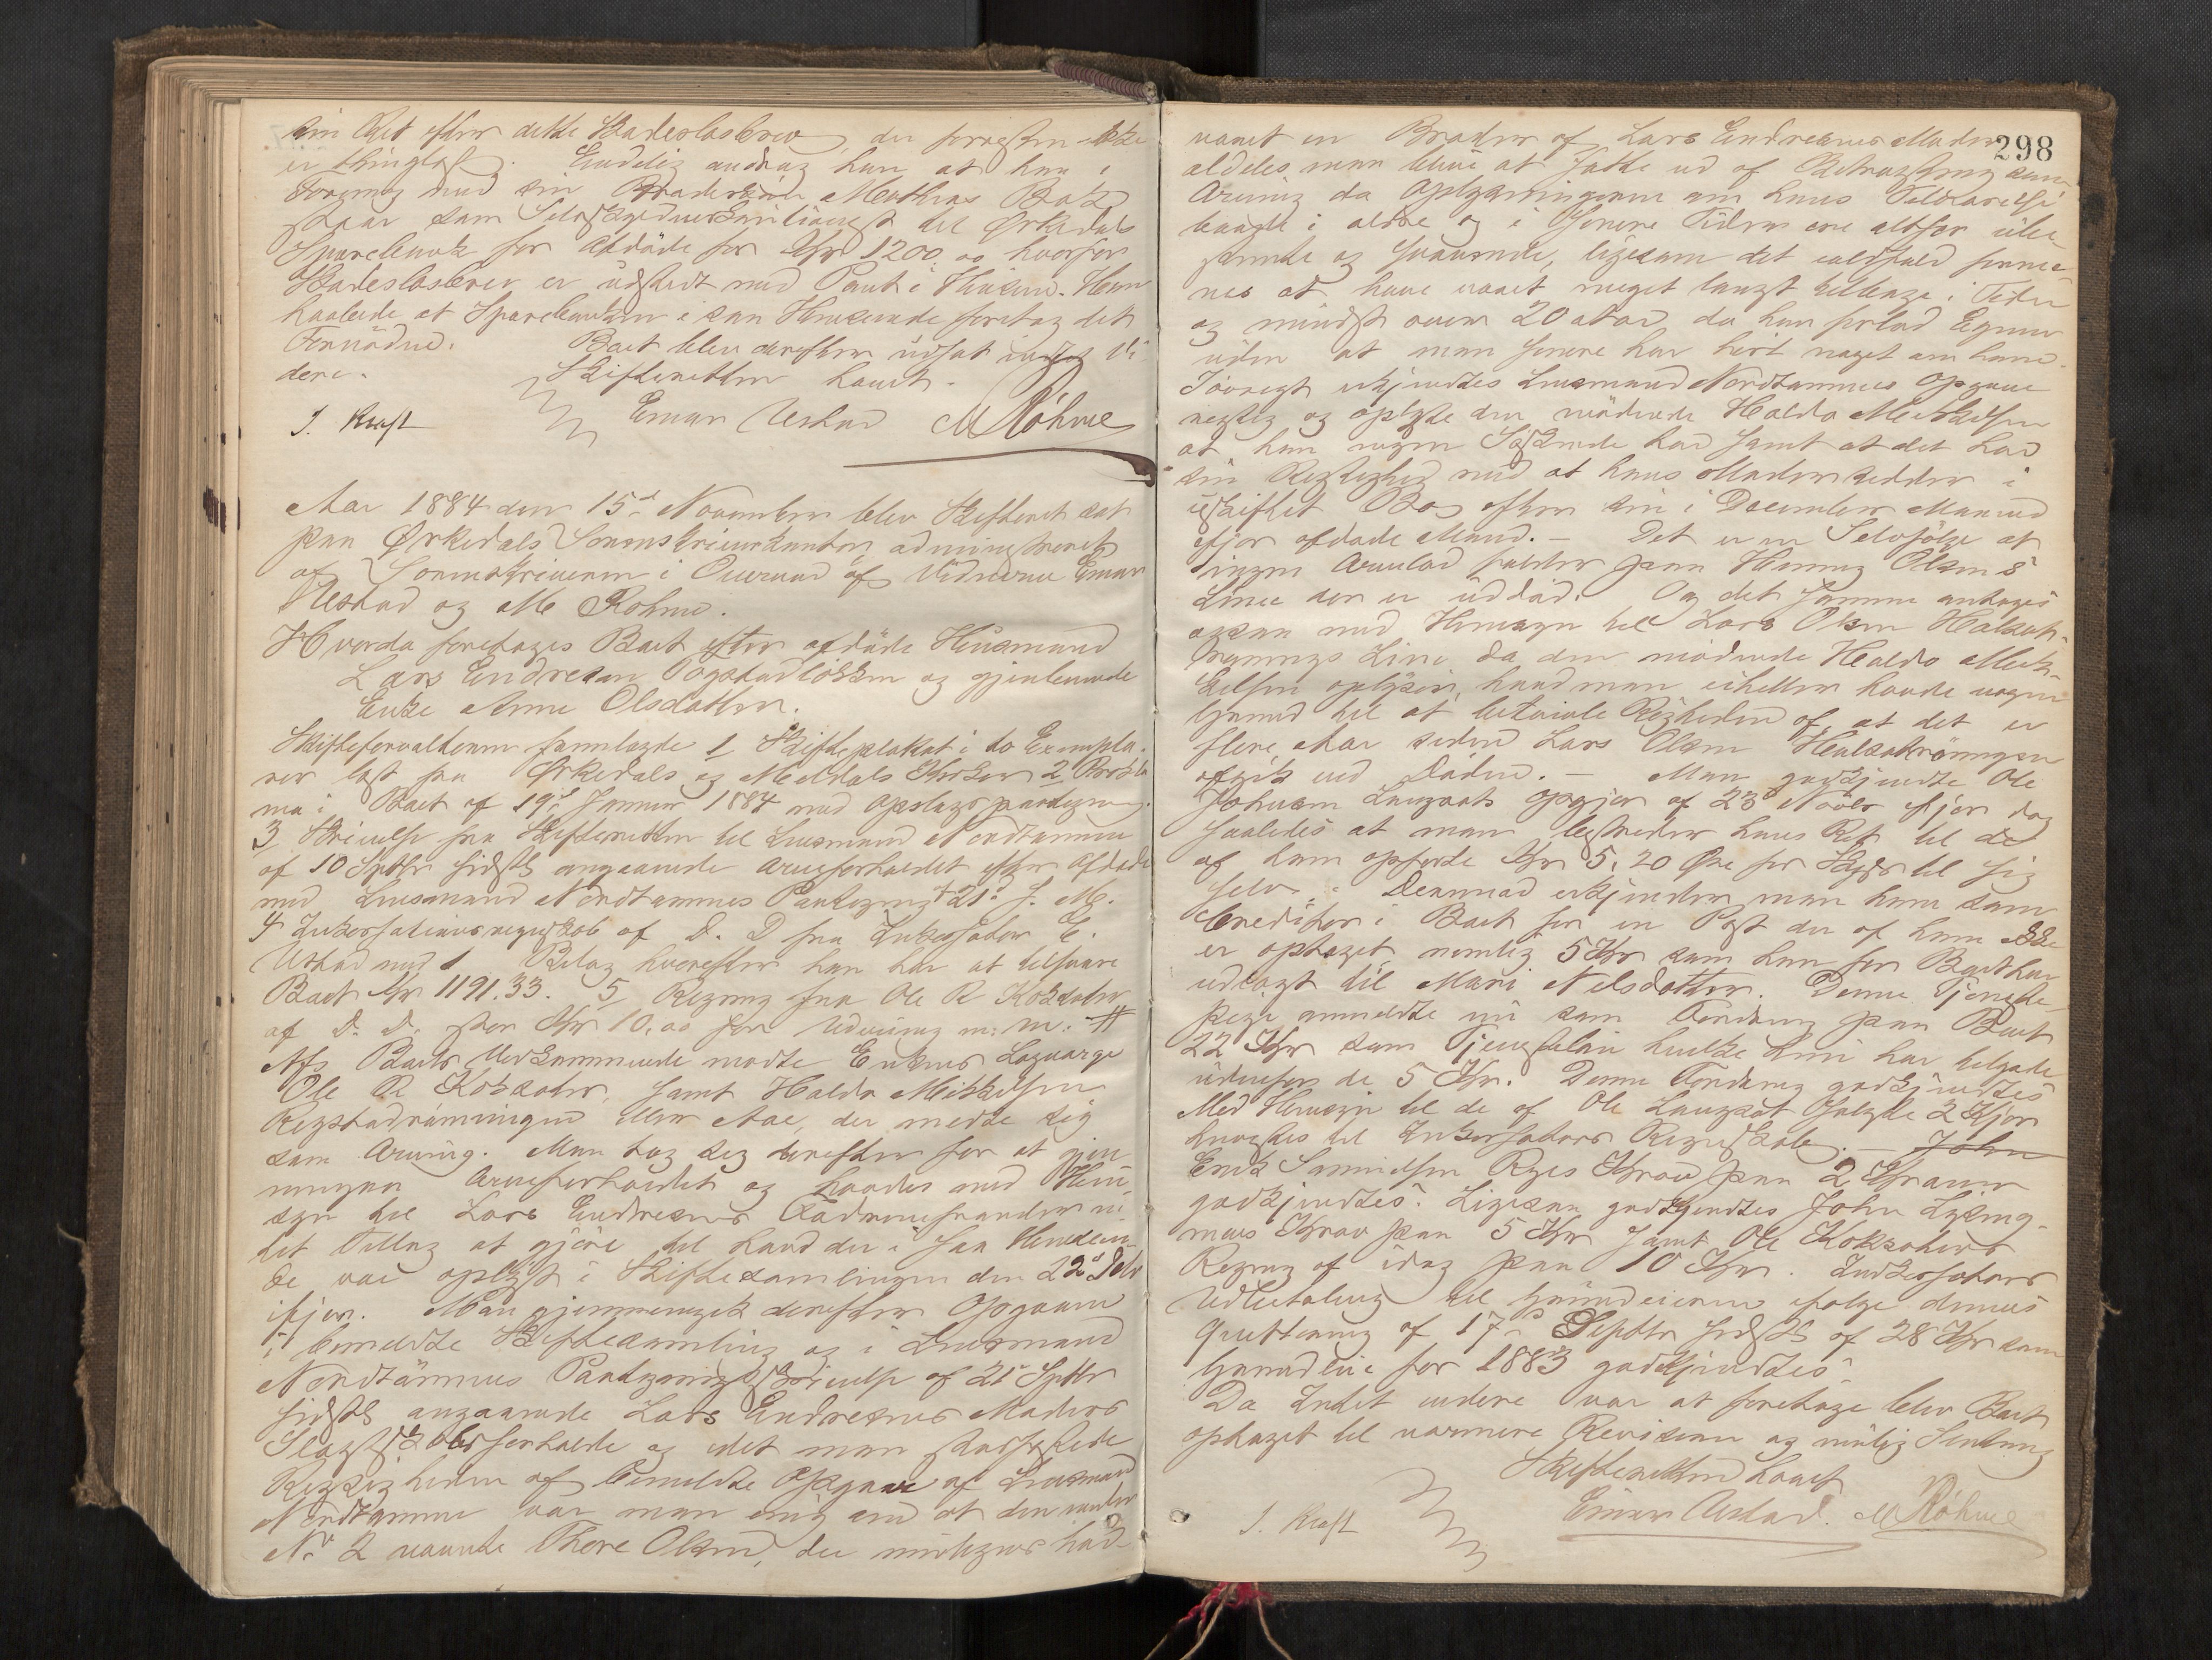 sin Ret efter dette Skadesløsbrev, der forresten ikke
er thinglæst. Endelig androg han at han i
Forening med sin Broder Mathias Bak
staar som Selvskyldnerkautionist til Ørkedals
Sparebank for Afdøde for Kr 1200.00 hvorfor
Skadesløsbrev er udstedt med Pant i Husene. Han
holdt at Sparebanken i saa Henseende foretog det
Fornødne. Boet blev derefter udsat indtil Vi
dere. Skifteretten hævet.
J. Kraft Einar Ustad M Röhme
Aar 1884 den 15d November blev Skifteret sat
paa Ørkedals Sorenskriverkontor administreret
af Sorenskriveren i Overvær af Vidnerne Einar
Ustad og M Röhme.
Hvorda foretoges Boet efter afdøde Husmand
Lars Endresen Fogstadløkken og gjenlevende
Enke Anne Olsdatter.
Skifteforvalteren fremlagde 1, Skifteplakat i to Exempla-
rer læst fra Ørkedals og Meldals Kirker 2, Prokla
ma i Boet af 19d Januar 1884 med Opslags paategning.
3, Skrivelse fra Skifteretten til Lensmand Nordtømme
af 10 Septbr sidstl angaaende Arveforholdet efter Afdøde
med Lensmand Nordtømmes Paategning 21d s. M.
4, Inkassationsregnskab af D. D fra Inkassator E.
Ustad med 1 Bilag hvorefter han har at tilsvare
Boet Kr 1191.33. 5, Regning fra Ole R Kokaker
af D. D. stor Kr 10.00 for Udvisning m: m. #
Af Boets Vedkommende mødte Enkens Laugværge
Ole R Kokaker, samt Haldo Mikkelsen
Rigstadrønningen eller Aae, der meldte sig
som Arving. Man tog sig derefter for at gjen
nemgaa Arveforholdet og havdes med Hen
syn til Lars Endresens Fædrenefrænder in
tet Tillæg at gjøre til hvad der i saa Henseen
de var oplyst i Skiftesamlingen den 22d Febr
ifjor. Man gjennemgik derefter Opgaven
i bemeldte Skiftesamling og i Lensmand
Nordtømmes Paategningsskrivelse af 21d Septbr
sidstl angaaende Lars Endresens Moders
Slægtskabsforholde og idet man stadfæstede
Rigtigheden af bemeldte Opgave af Lensmand
Nordtømme var man enig om at den under
No 2 nævnte Thore Olsen, der muligens har
298
været en Broder af Lars Endresens Moder
aldeles man blive at sætte ud af Betragtning som
Arving da Oplysningerne om hans Tilværelse
baade i ældre og i senere Tider ere altfor ube
stemte og svævende, ligesom det ialdfald
nes at have været meget langt tilbage i Tiden
og mindst over 20 Aar, da han forlod Egnen
uden at man senere har hørt noget om ham.
Iøvrigt erkjendtes Lensmand Nordtømmes Opgave
rigtig og oplyste den mødende Haldo Mikkelsen
at han ingen Søskende har samt at det har
sin Rigtighed med at hans Moder sidder i
uskiftet Bo efter sin i December Maaned
ifjor afdøde Mand. – Det er en Selvfølge at
ingen Arvelod falder paa Henning Olsens
Linie der er uddød. Og det samme antages
ogsaa med Hensyn til Lars Olsen Halsæt-
rønnings Linie, da den mødende Haldo Mik-
kelsen oplyser, hvad man iheller havde nogen
Grund til at betvivle Rigtigheden af, at det er
flere Aar siden Lars Olsen Halsætrønningen
afgik ved Døden. – Man godkjendte Ole
Johnsen Langsæts Opgjør af 23d Novbr ifjor dog
saaledes at man bestrider hans Ret til de
af ham opførte Kr 5.20 Øre for Skyds til sig
selv. Derimod erkjender man ham som
Creditor i Boet for en Post der af ham ikke
er optaget, nemlig 5 Kr som han for Boet har
udlagt til Mari Nilsdatter. Denne Tjeneste-
pige anmeldte nu som Fordring paa Boet
22 Kr som Tjenesteløn hvilke hun har tilgode
udenfor de 5 Kr. Denne Fordring godkjendtes
Med Hensyn til de af Ole Langsæt solgte 2 Kjør
henvistes til Inkassators Regnskab. – John
Erik Samuelsen Ryes Krav paa 2 Kroner
godkjendtes. Ligesaa godkjendtes John Lysing-
moes Krav paa 5 Kr samt Ole Kokaakers
Regning af idag paa 10 Kr. Inkassators
Udbetaling til Grundeieren ifølge dennes
Qvittering af 17d Septbr sidstl af 28 Kr som
Grundleie for 1883 godkjendtes.
Da Intet videre var at foretage blev Boet
optaget til nærmere Revision og mulig Slutning
Skifteretten hævet
J. Kraft Einar Ustad. M Röhme